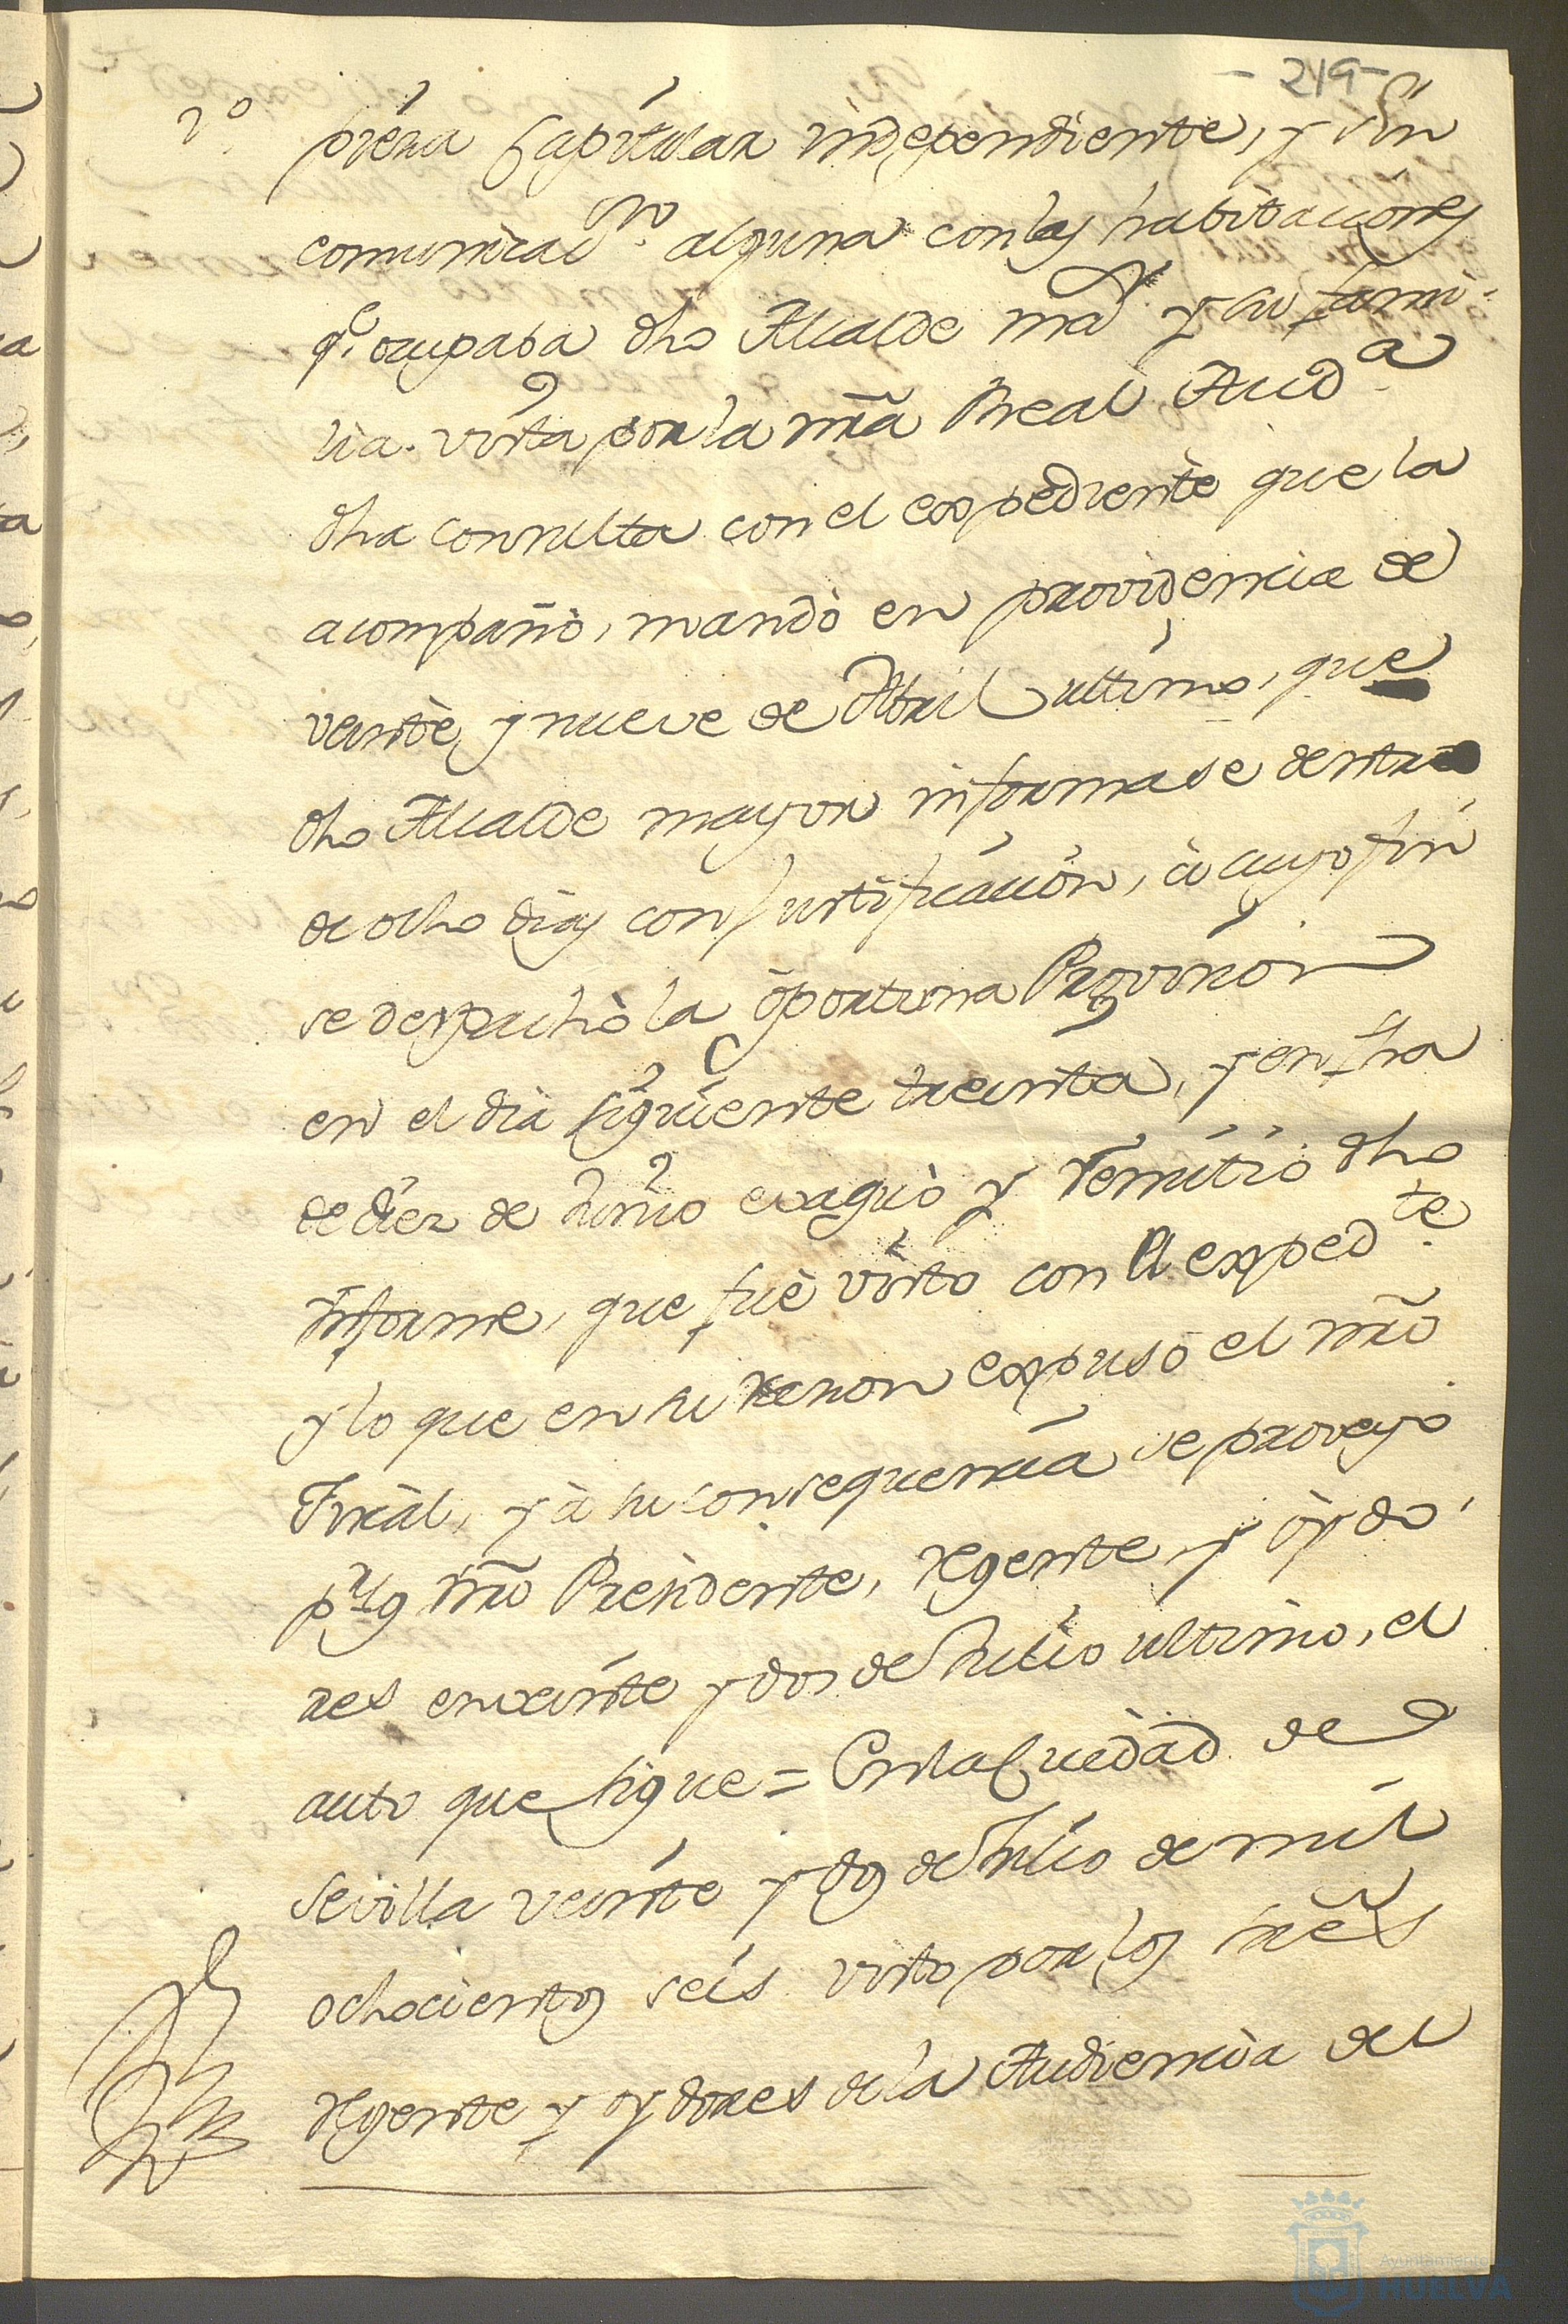 - 219 -
2º. pieza Capitular independiente, y sin
comunicacn. alguna con las habitaciones
qe. ocupaba dho Alcalde mor. y su fami-
lia. vista por la nrã Real Auda.
dha consulta con el expediente que la
acompañò, mandò en providencia de
veinte y nueve de Abril ultimo, que
dho Alcalde mayor informase dentro
de ocho dias con justificacion, à cuyo fin
se despachò la oportuna Provision
en el dia siguiente treinta, y en fha
de diez de Junio evaquò y remitiò dho
Informe, que fuè visto con el expedte.
y lo que en su razon expuso el nrõ
Fiscal, y à su consequencia se proveyo
por nrõ Presidente, regente y oydo-
res en veinte y dos de Julio ultimo, el
auto que sigue = En la Ciudad de
Sevilla veinte y dos de Julio de mil
ochocientos seis visto por los sres
regente y oydores de la Audiencia de
Ayuntamiento de
HUELVA